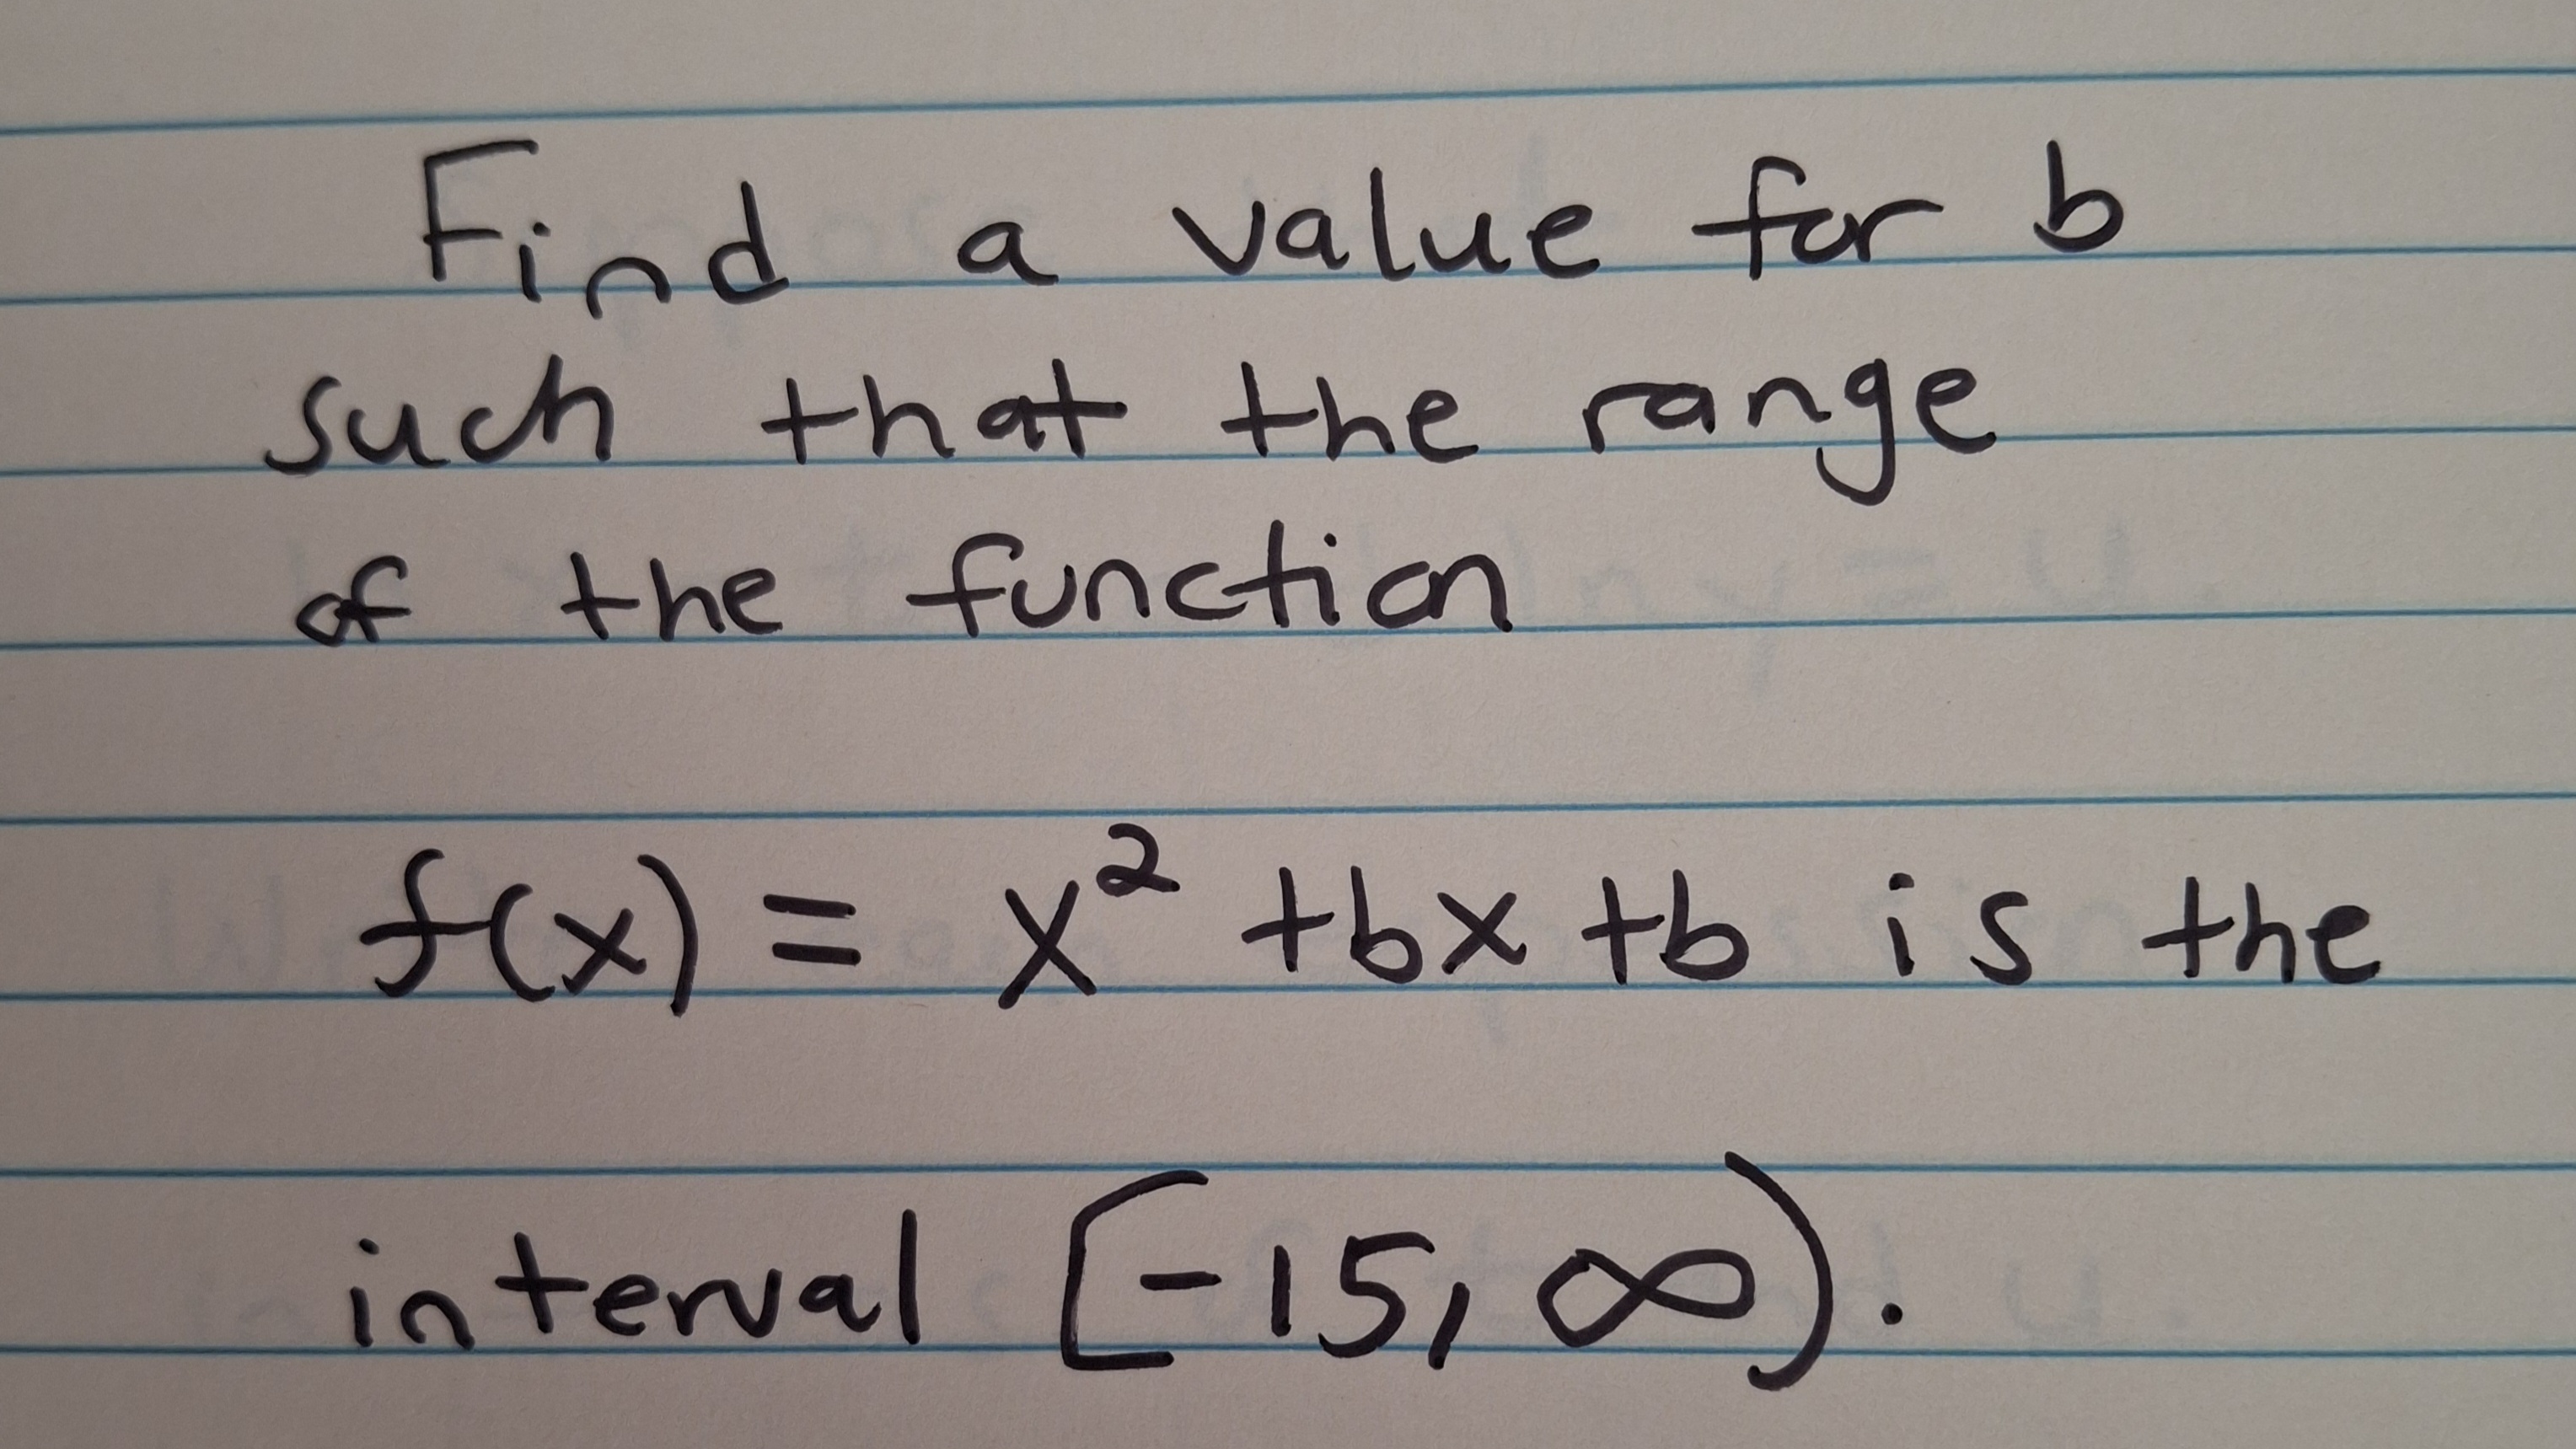 Find a value for b
such that the range
of the function
f(x) = x² + bx + b is the
interval [-15, ∞).